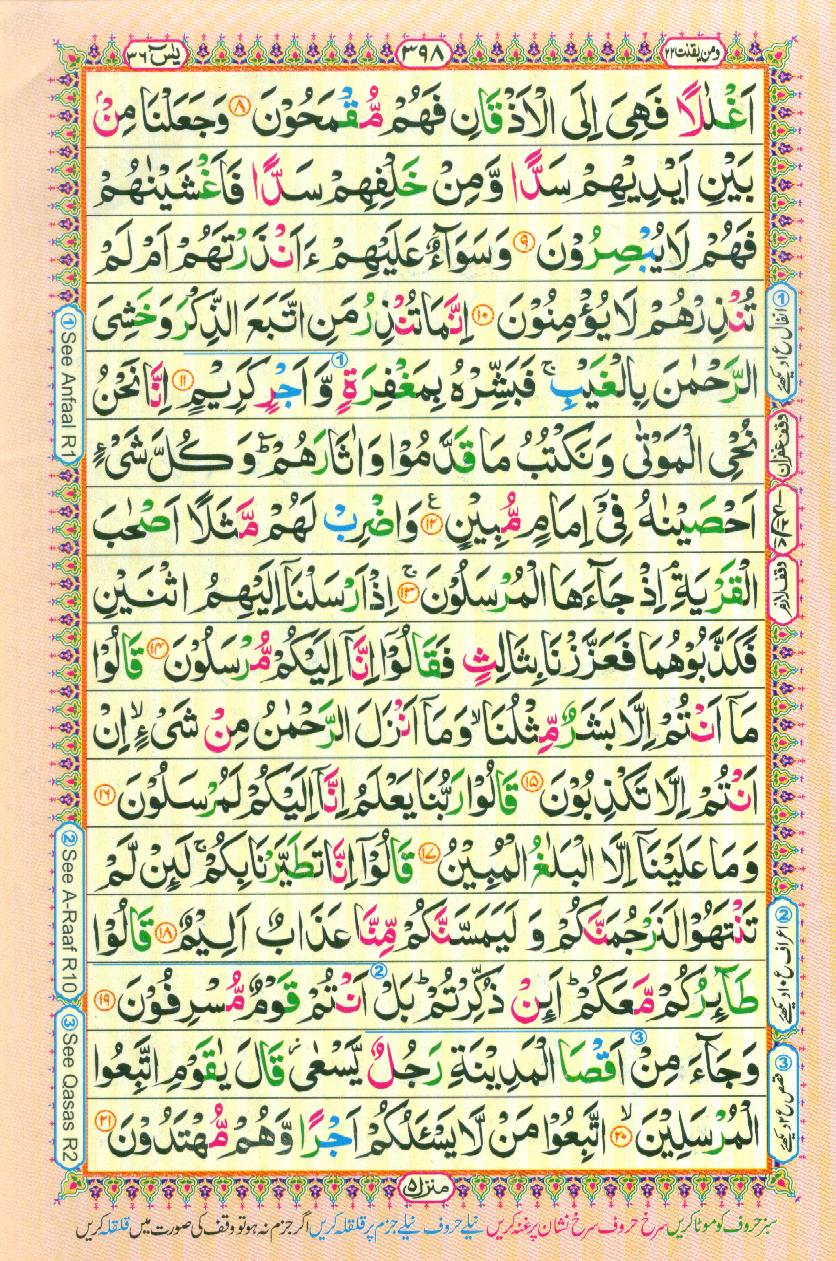 ومن يقنت ٢٢
٣٩٨
يٰسٓ ٣٦
اَغْلٰلًا فَهِیَ اِلَى الْاَذْقَانِ فَهُمْ مُّقْمَحُوْنَ ﴿۸﴾ وَجَعَلْنَا مِنْۢ
بَیْنِ اَیْدِیْهِمْ سَدًّا وَّمِنْ خَلْفِهِمْ سَدًّا فَاَغْشَیْنٰهُمْ
فَهُمْ لَا یُبْصِرُوْنَ ﴿۹﴾ وَسَوَآءٌ عَلَیْهِمْ ءَاَنْذَرْتَهُمْ اَمْ لَمْ
تُنْذِرْهُمْ لَا یُؤْمِنُوْنَ ﴿۱۰﴾ اِنَّمَا تُنْذِرُ مَنِ اتَّبَعَ الذِّكْرَ وَخَشِیَ
الرَّحْمٰنَ بِالْغَیْبِ ۚ فَبَشِّرْهُ بِمَغْفِرَةٍ وَّ اَجْرٍ كَرِیْمٍ ﴿۱۱﴾ اِنَّا نَحْنُ
نُحْیِ الْمَوْتٰى وَنَكْتُبُ مَا قَدَّمُوْا وَاٰثَارَهُمْ ؕ وَكُلَّ شَیْءٍ
اَحْصَیْنٰهُ فِیْۤ اِمَامٍ مُّبِیْنٍ ﴿۱۲﴾ وَاضْرِبْ لَهُمْ مَّثَلًا اَصْحٰبَ
الْقَرْیَةِ ۘ اِذْ جَآءَهَا الْمُرْسَلُوْنَ ﴿۱۳﴾ اِذْ اَرْسَلْنَاۤ اِلَیْهِمُ اثْنَیْنِ
فَكَذَّبُوْهُمَا فَعَزَّزْنَا بِثَالِثٍ فَقَالُوْۤا اِنَّاۤ اِلَیْكُمْ مُّرْسَلُوْنَ ﴿۱۴﴾ قَالُوْا
مَاۤ اَنْتُمْ اِلَّا بَشَرٌ مِّثْلُنَا ۙ وَمَاۤ اَنْزَلَ الرَّحْمٰنُ مِنْ شَیْءٍ ۙ اِنْ
اَنْتُمْ اِلَّا تَكْذِبُوْنَ ﴿۱۵﴾ قَالُوْا رَبُّنَا یَعْلَمُ اِنَّاۤ اِلَیْكُمْ لَمُرْسَلُوْنَ ﴿۱۶﴾
وَمَا عَلَیْنَاۤ اِلَّا الْبَلٰغُ الْمُبِیْنُ ﴿۱۷﴾ قَالُوْۤا اِنَّا تَطَیَّرْنَا بِكُمْ ۚ لَىِٕنْ لَّمْ
تَنْتَهُوْا لَنَرْجُمَنَّكُمْ وَ لَیَمَسَّنَّكُمْ مِّنَّا عَذَابٌ اَلِیْمٌ ﴿۱۸﴾ قَالُوْا
طَآىِٕرُكُمْ مَّعَكُمْ ؕ اَىِٕنْ ذُكِّرْتُمْ ؕ بَلْ اَنْتُمْ قَوْمٌ مُّسْرِفُوْنَ ﴿۱۹﴾
وَجَآءَ مِنْ اَقْصَا الْمَدِیْنَةِ رَجُلٌ یَّسْعٰى ؗ قَالَ یٰقَوْمِ اتَّبِعُوا
الْمُرْسَلِیْنَ ﴿۲۰﴾ اتَّبِعُوْا مَنْ لَّا یَسْـَٔلُكُمْ اَجْرًا وَّهُمْ مُّهْتَدُوْنَ ﴿۲۱﴾
منزل ٥
سبز حروف کو موٹا کریں سرخ حروف سرخ نشان پر غنہ کریں نیلے حروف نیلے جزم پر قلقلہ کریں اگر جزم نہ ہو تو وقف کی صورت میں قلقلہ کریں
① انفال ع ۱ دیکھئے
وقف غفران
وقف لازم
② اعراف ع ۱۰ دیکھئے
③ قصص ع ۲ دیکھئے
① See Anfaal R1
② See A-Raaf R10
③ See Qasas R2